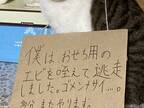 僕はおせち用の
エビを咥えて逃走
しました。ゴメンナサイ…。